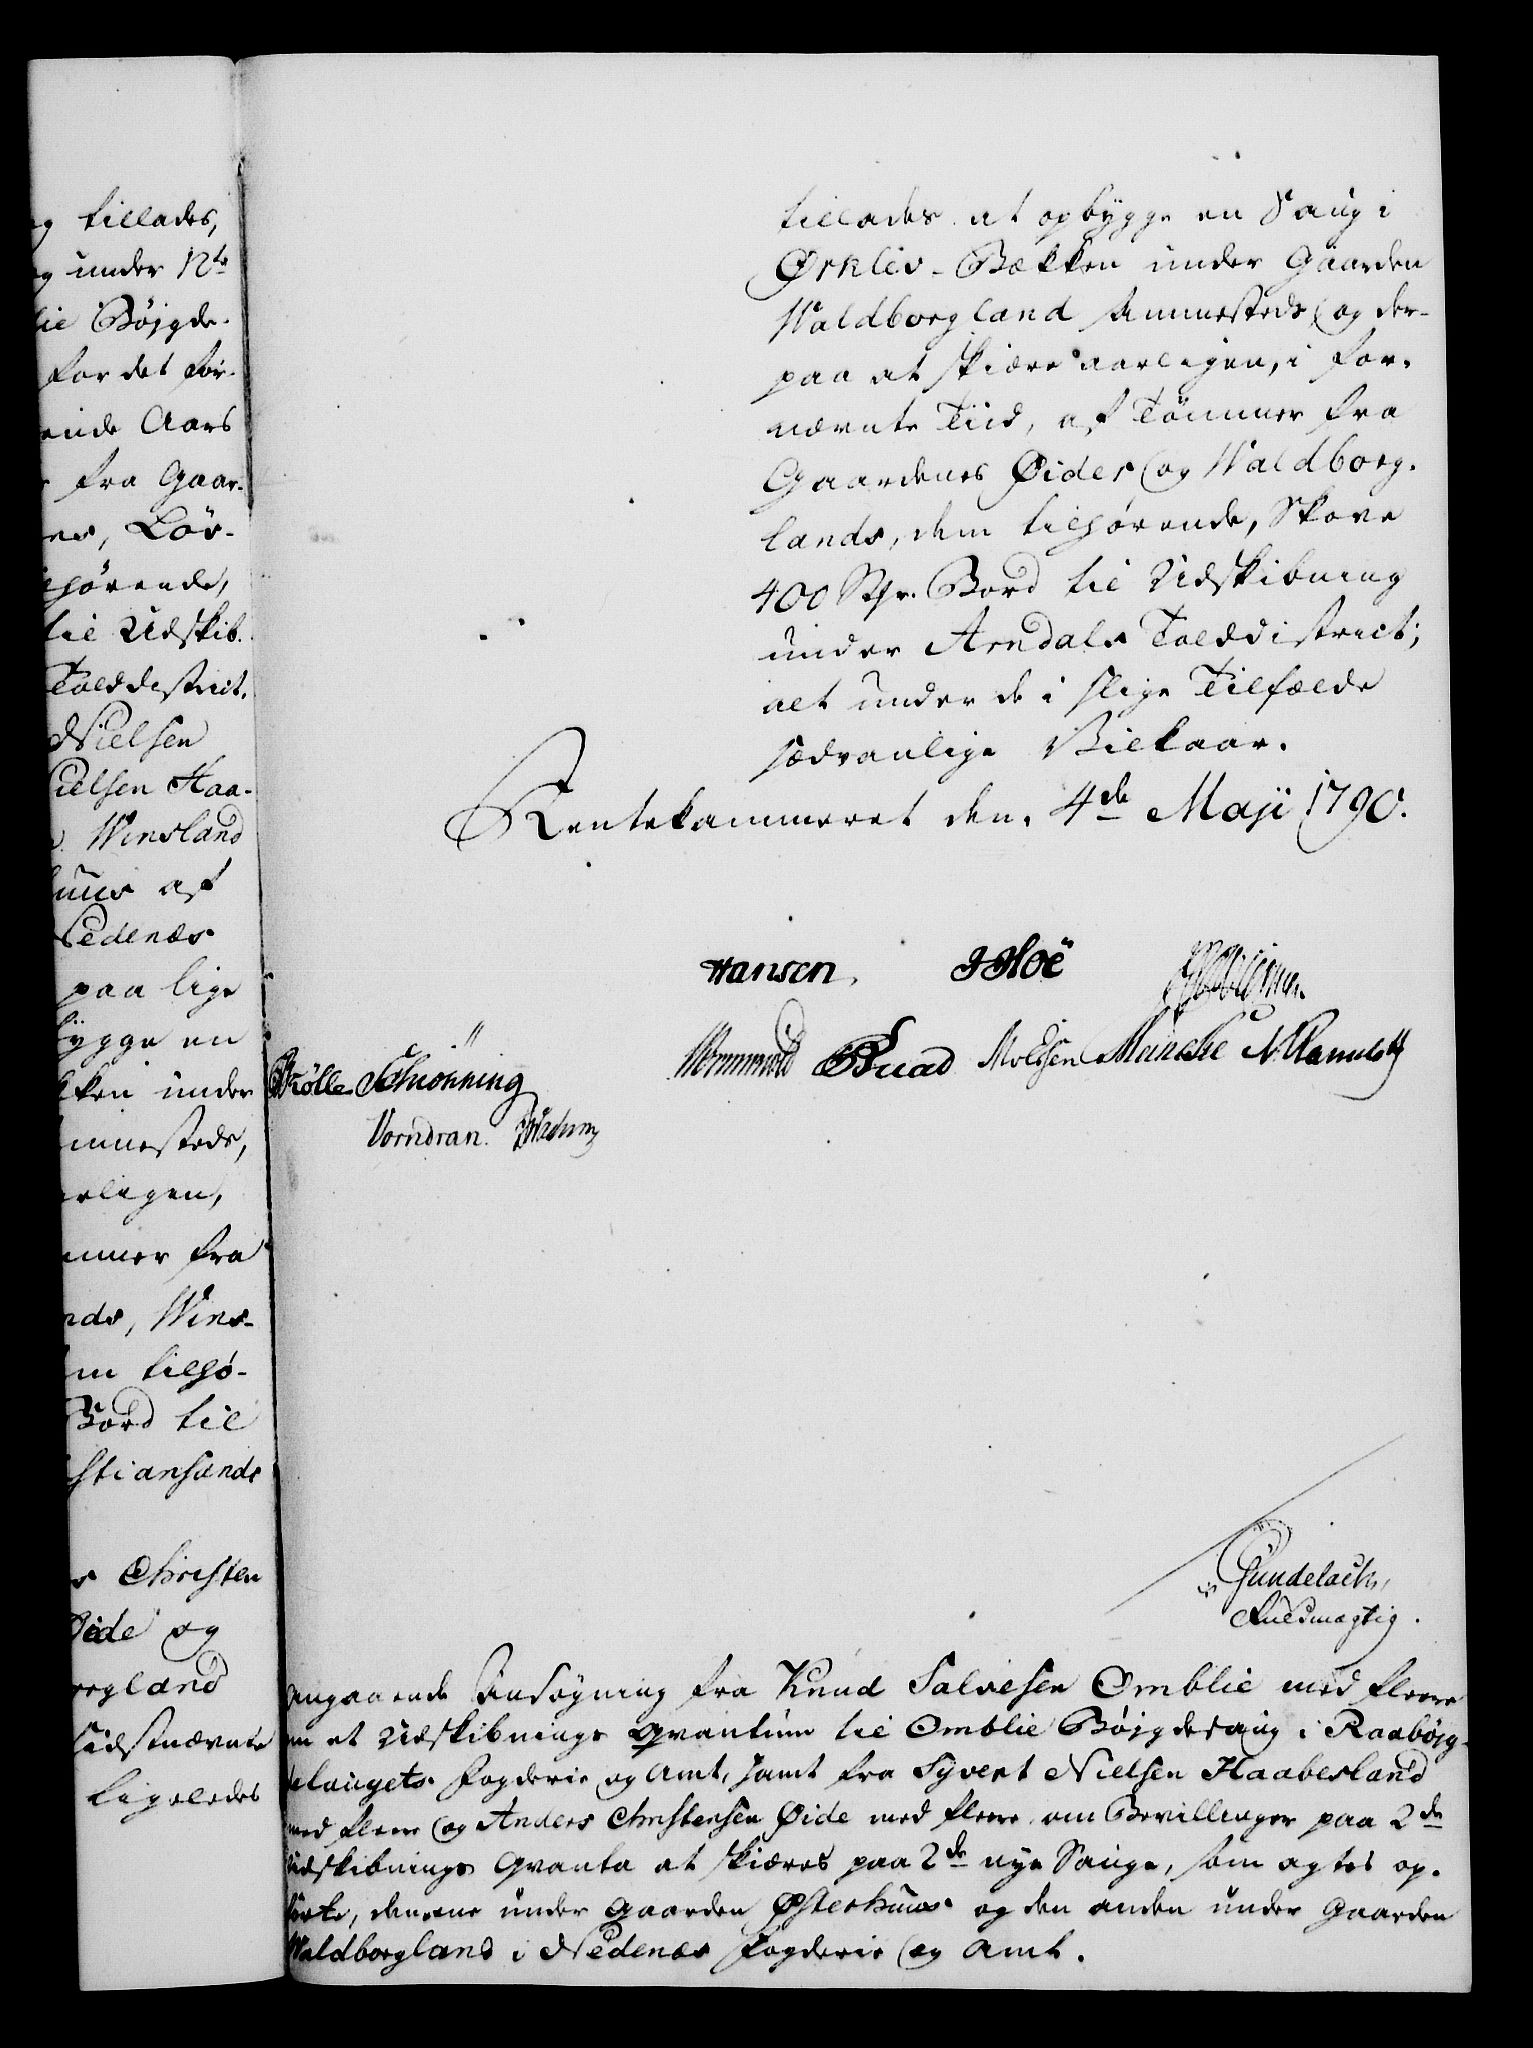 tillades,
under Nto
lie Böjgde-
for det för-
ende Aars
fra Gaar-
Löv-
hörende,
til Udskib-
Tolddistrict.
Nielsen
ielsen Haa-
Winsland
huus af
Nedenæs
paa lige
bygge en
kken under
ammesteds,
arligen,
mmer fra
nds, Wins-
m tilhö-
Bord til
stiansands
Christen
Öide og
orgland
sidstnævnte
ligeledes
tillades at opbygge en Saug i
Ørklev-Bækken under Gaarden
Waldborgland sammesteds og der-
paa at skiære aarligen, i for-
nævnte Tiid, af Tömmer fra
Gaardenes Øides og Waldborg-
lands, dem tilhörende, Skove
400 Str. Bord til Udskibning
under Arndals Tolddistrict;
alt under de i slige Tilfælde
sædvanlige Vilkaar.
Rentekammeret den 4de Maji 1790.
Hansen. J Hoë
Wormskiold Knad Moldsen Meincke
Krölle Schiönning
Vorndran.
Gundelach,
Fuldmægtig.
angaaende Ansögning fra Knud Salvesen Omblie med fleere
om et Udskibnings qvantum til Omblie Böjgdesaug i Raabojg-
delaugets Fogderie og Amt, samt fra Syvert Nielsen Haabesland
med fleere og Anders Christensen Øide med fleere om Bevillinger paa 2de
Udskibnings Qvanta at skiæres paa 2de nye Sauge, som agtes op-
förte, den ene under Gaarden Østerhuus og den anden under Gaarden
Waldborgland i Nedenæs Fogderie og Amt.